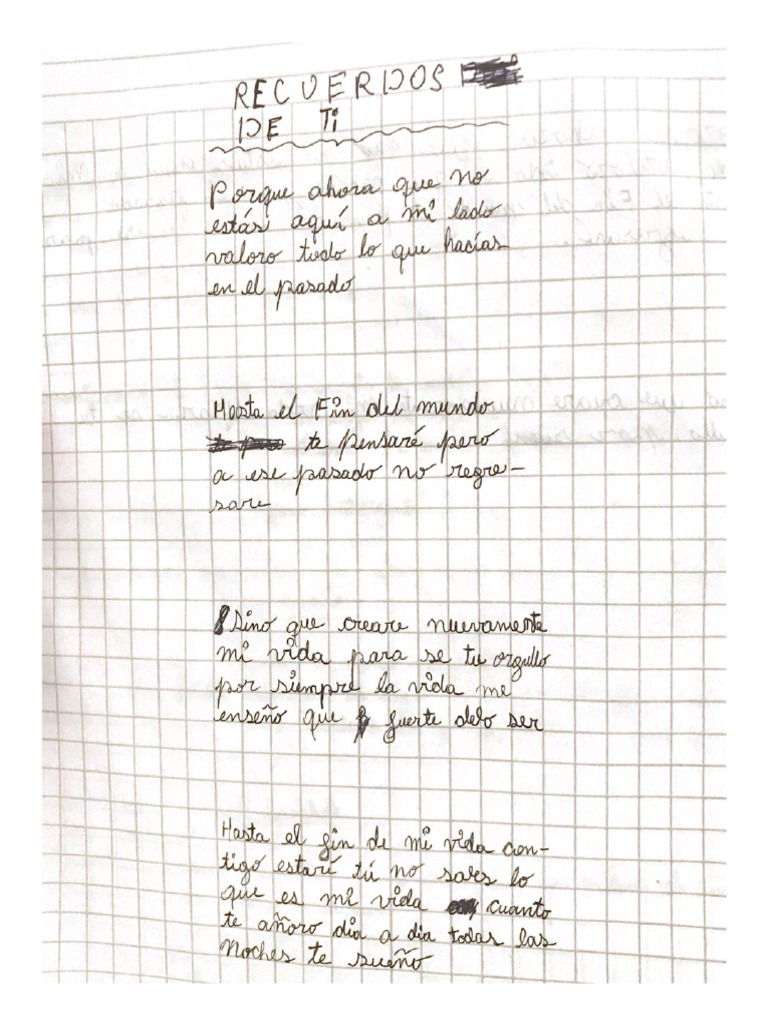 RECUERDOS
DE Ti
Porque ahora que no
estás aquí a mi lado
valoro todo lo que hacías
en el pasado
Hasta el Fin del mundo
te pensaré pero
a ese pasado no regre-
sare
Sino que creare nuevamente
mi vida para se tu orgullo
por siempre la vida me
enseño que fuerte debo ser
Hasta el fin de mi vida con-
tigo estaré tú no sabes lo
que es mi vida cuanto
te añoro dia a dia todas las
noches te sueño